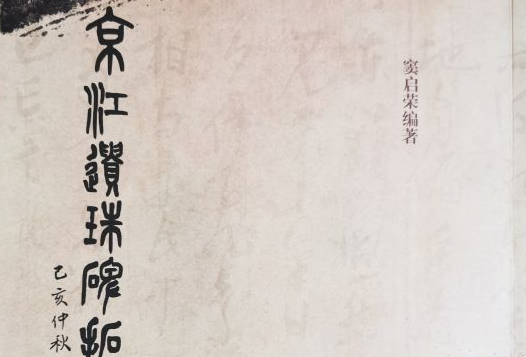 窦启荣编著
京江遗珠碑拓
己亥仲秋